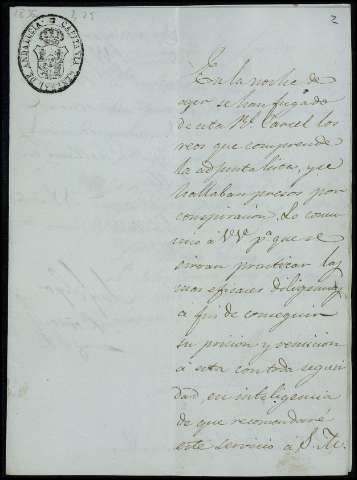 2
CAPITANIA GENERAL DE ANDALUCIA
En la noche de
ayer se han fugado
de esta Rl. Carcel los
reos que comprende
la adjunta lista, y se
hallaban presos por
conspiracion. Lo comu
nico á VV. pa. que se
sirvan practicar las
mas eficaces diligencias
a fin de conseguir
su prision y remision
á esta con toda seguri
dad, en inteligencia
de que recomendaré
este servicio á S. M.